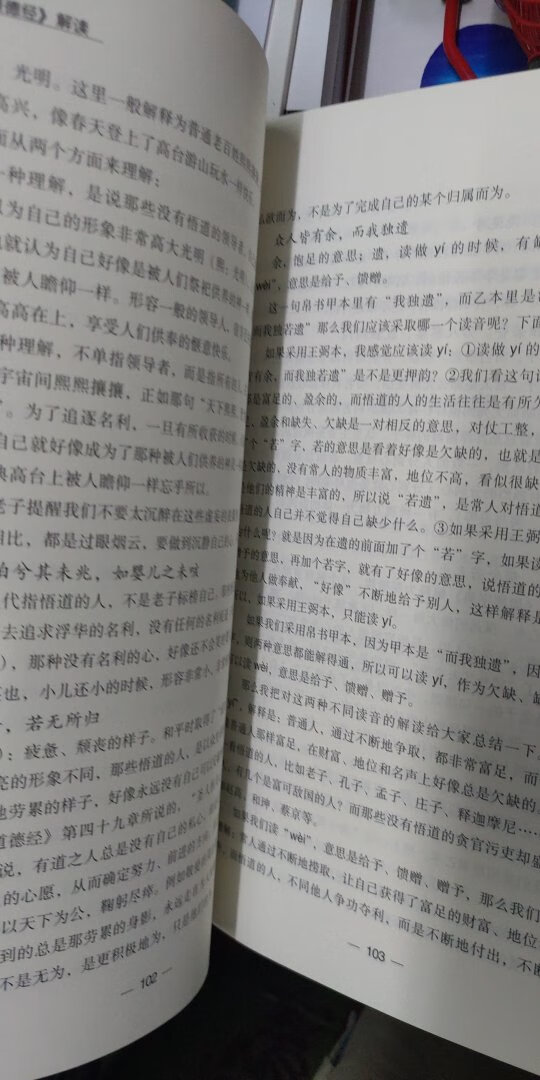 德经》解读
光明。这里一般解释为普通老百姓熙熙攘攘
高兴，像春天登上了高台游山玩水一样
面从两个方面来理解：
一种理解，是说那些没有悟道的领导者
以为自己的形象非常高大光明（熙：光明）
也就认为自己好像是被人们祭祀供养的神一
被人瞻仰一样。形容一般的领导人
高高在上，享受人们供奉的惬意快乐。
种理解，不单指领导者，而是指所有
宇宙间熙熙攘攘，正如那句“天下熙熙
”。为了追逐名利，一旦有所收获的时候
自己就好像成为了那种被人们供养的神
典高台上被人瞻仰一样忘乎所以。
老子提醒我们不要太沉醉在这些虚妄
相比，都是过眼烟云，要做到沉静自己
泊兮其未兆，如婴儿之未咳
代指悟道的人，不是老子标榜自己
去追求浮华的名利，没有任何的名利
），那种没有名利的心，好像还不会笑
笑也，小儿还小的时候，形容非常小
，若无所归
）：疲惫、颓丧的样子。和平时取得了
亮的形象不同，那些悟道的人，是以
他劳累的样子，好像永远没有自己可以
道德经》第四十九章所说的，“圣人
说，有道之人总是没有自己的私心
的心愿，从而确定努力、前进的方向
以天下为公，鞠躬尽瘁。例如敬爱的
到的总是那劳累的身影，永远走在为
不是无为，是更积极地为，只是
— 102 —
么欲而为，不是为了完成自己的某个归属而为。
众人皆有余，而我独遗
余，饱足的意思；遗，读做 yí 的时候，有缺
wèi”，意思是给予、馈赠。
这一句帛书甲本里有“我独遗”，而乙本里是
而我独若遗”那么我们应该采取哪一个读音呢？下面
如果采用王弼本，我感觉应该读 yí：①读做 yí 的
有余，而我独若遗”是不是更押韵？②我们看这句话
都是富足的、盈余的，而悟道的人的生活往往是有所欠
，盈余和缺失、欠缺是一对相反的意思，对仗工整，
个“若”字，若的意思是看着好像是欠缺的，也就是
是欠缺的，没有常人的物质丰富，地位不高，看似很缺
是他们的精神是丰富的，所以说“若遗”，是常人对悟道
悟道的人自己并不觉得自己缺少什么。③如果采用王弼
为什么呢？就是因为在遗的前面加了个“若”字，如果读
给予的意思，再加个若字，就有了好像的意思，说悟道的
为他人做奉献，“好像”不断地给予别人，这样解释是
以，如果采用王弼本，只能读 yí。
如果我们采用帛书甲本，因为甲本是“而我独遗”，因
，则两种意思都能解得通，所以可以读 yí，作为欠缺、缺
可以读 wèi，意思是给予、馈赠、赠予。
那么我把对这两种不同读音的解读给大家总结一下
yí”，解释是：普通人，通过不断地争取，都非常富足，而
像普通人那样富足，在财富、地位和名声上好像总是欠缺的
看悟道的人，比如老子、孔子、孟子、庄子、释迦摩尼……
人，有几个是富可敌国的人？而那些没有悟道的贪官污吏却
赵高、和珅、蔡京等。
如果我们读“wèi”，意思是给予、馈赠、赠予，那么我们
理解：常人通过不断地攫取，让自己获得了富足的财富、地位
，而悟道的人，不同他人争功夺利，而是不断地付出，不断
— 103 —